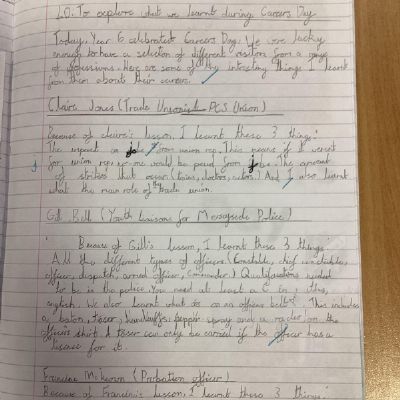 L.O. To explore what we learnt during Careers Day
Today, Year 6 celebrated Careers Day. We were lucky
enough to have a selection of different visitors from a range
of professions. Here are some of the interesting things I learnt
from them about their careers.
Claire Jones (Trade Unionist PCS Union)
Because of Claire's lesson, I learnt these 3 things:
The impact on job from union rep. This means if it wasn't
for union reps no-one would be paid from jobs. The amount
of strikes that occur (trains, doctors, actors.) And I also learnt
what the main role of the trade union.
Gill Ball (Youth Liaisons for Merseyside Police)
Because of Gill's lesson, I learnt these 3 things:
All the different types of officers (Constable, chief constable,
officer, dispatch, armed officer, Commander.) Qualifications needed
to be in the police. You need at least a C in maths,
english. We also learnt what is on an officers belt. This includes
a baton, taser, handcuffs, pepper spray and a radio on the
officers shirt. A taser can only be carried if the officer has a
lisence for it.
Francine McKeown (Probation officer)
Because of Francine's lesson, I learnt these 3 things: